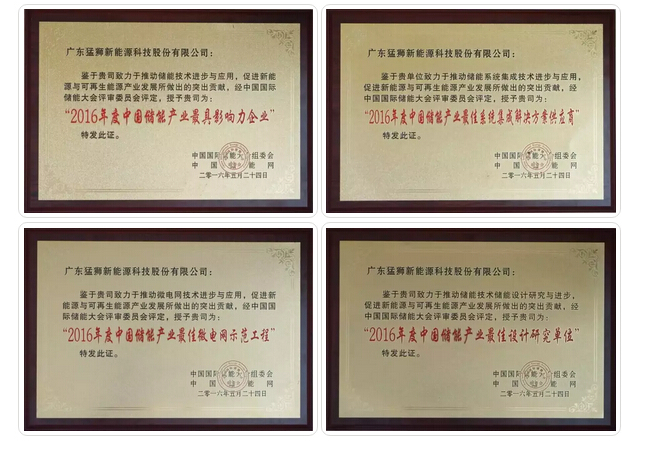 广东猛狮新能源科技股份有限公司：
鉴于贵司致力于推动储能技术进步与应用，促进新能
源与可再生能源产业发展所做出的突出贡献，经中国国际
储能大会评审委员会评定，授予贵司为：
“2016年度中国储能产业最具影响力企业”
特发此证。
中国国际储能大会组委会
中国储能网
二零一六年五月二十四日
广东猛狮新能源科技股份有限公司：
鉴于贵单位致力于推动储能系统集成技术进步与应用，
促进新能源与可再生能源产业发展所做出的突出贡献，经
中国国际储能大会评审委员会评定，授予贵司为：
“2016年度中国储能产业最佳系统集成解决方案供应商”
特发此证。
中国国际储能大会组委会
中国储能网
二零一六年五月二十四日
广东猛狮新能源科技股份有限公司：
鉴于贵司致力于推动微电网技术进步与应用，促进新
能源与可再生能源产业发展所做出的突出贡献，经中国国
际储能大会评审委员会评定，授予贵司为：
“2016年度中国储能产业最佳微电网示范工程”
特发此证。
中国国际储能大会组委会
中国储能网
二零一六年五月二十四日
广东猛狮新能源科技股份有限公司：
鉴于贵司致力于推动储能技术储能设计研究与进步，
促进新能源与可再生能源产业发展所做出的突出贡献，经中
国国际储能大会评审委员会评定，授予贵司为：
“2016年度中国储能产业最佳设计研究单位”
特发此证。
中国国际储能大会组委会
中国储能网
二零一六年五月二十四日